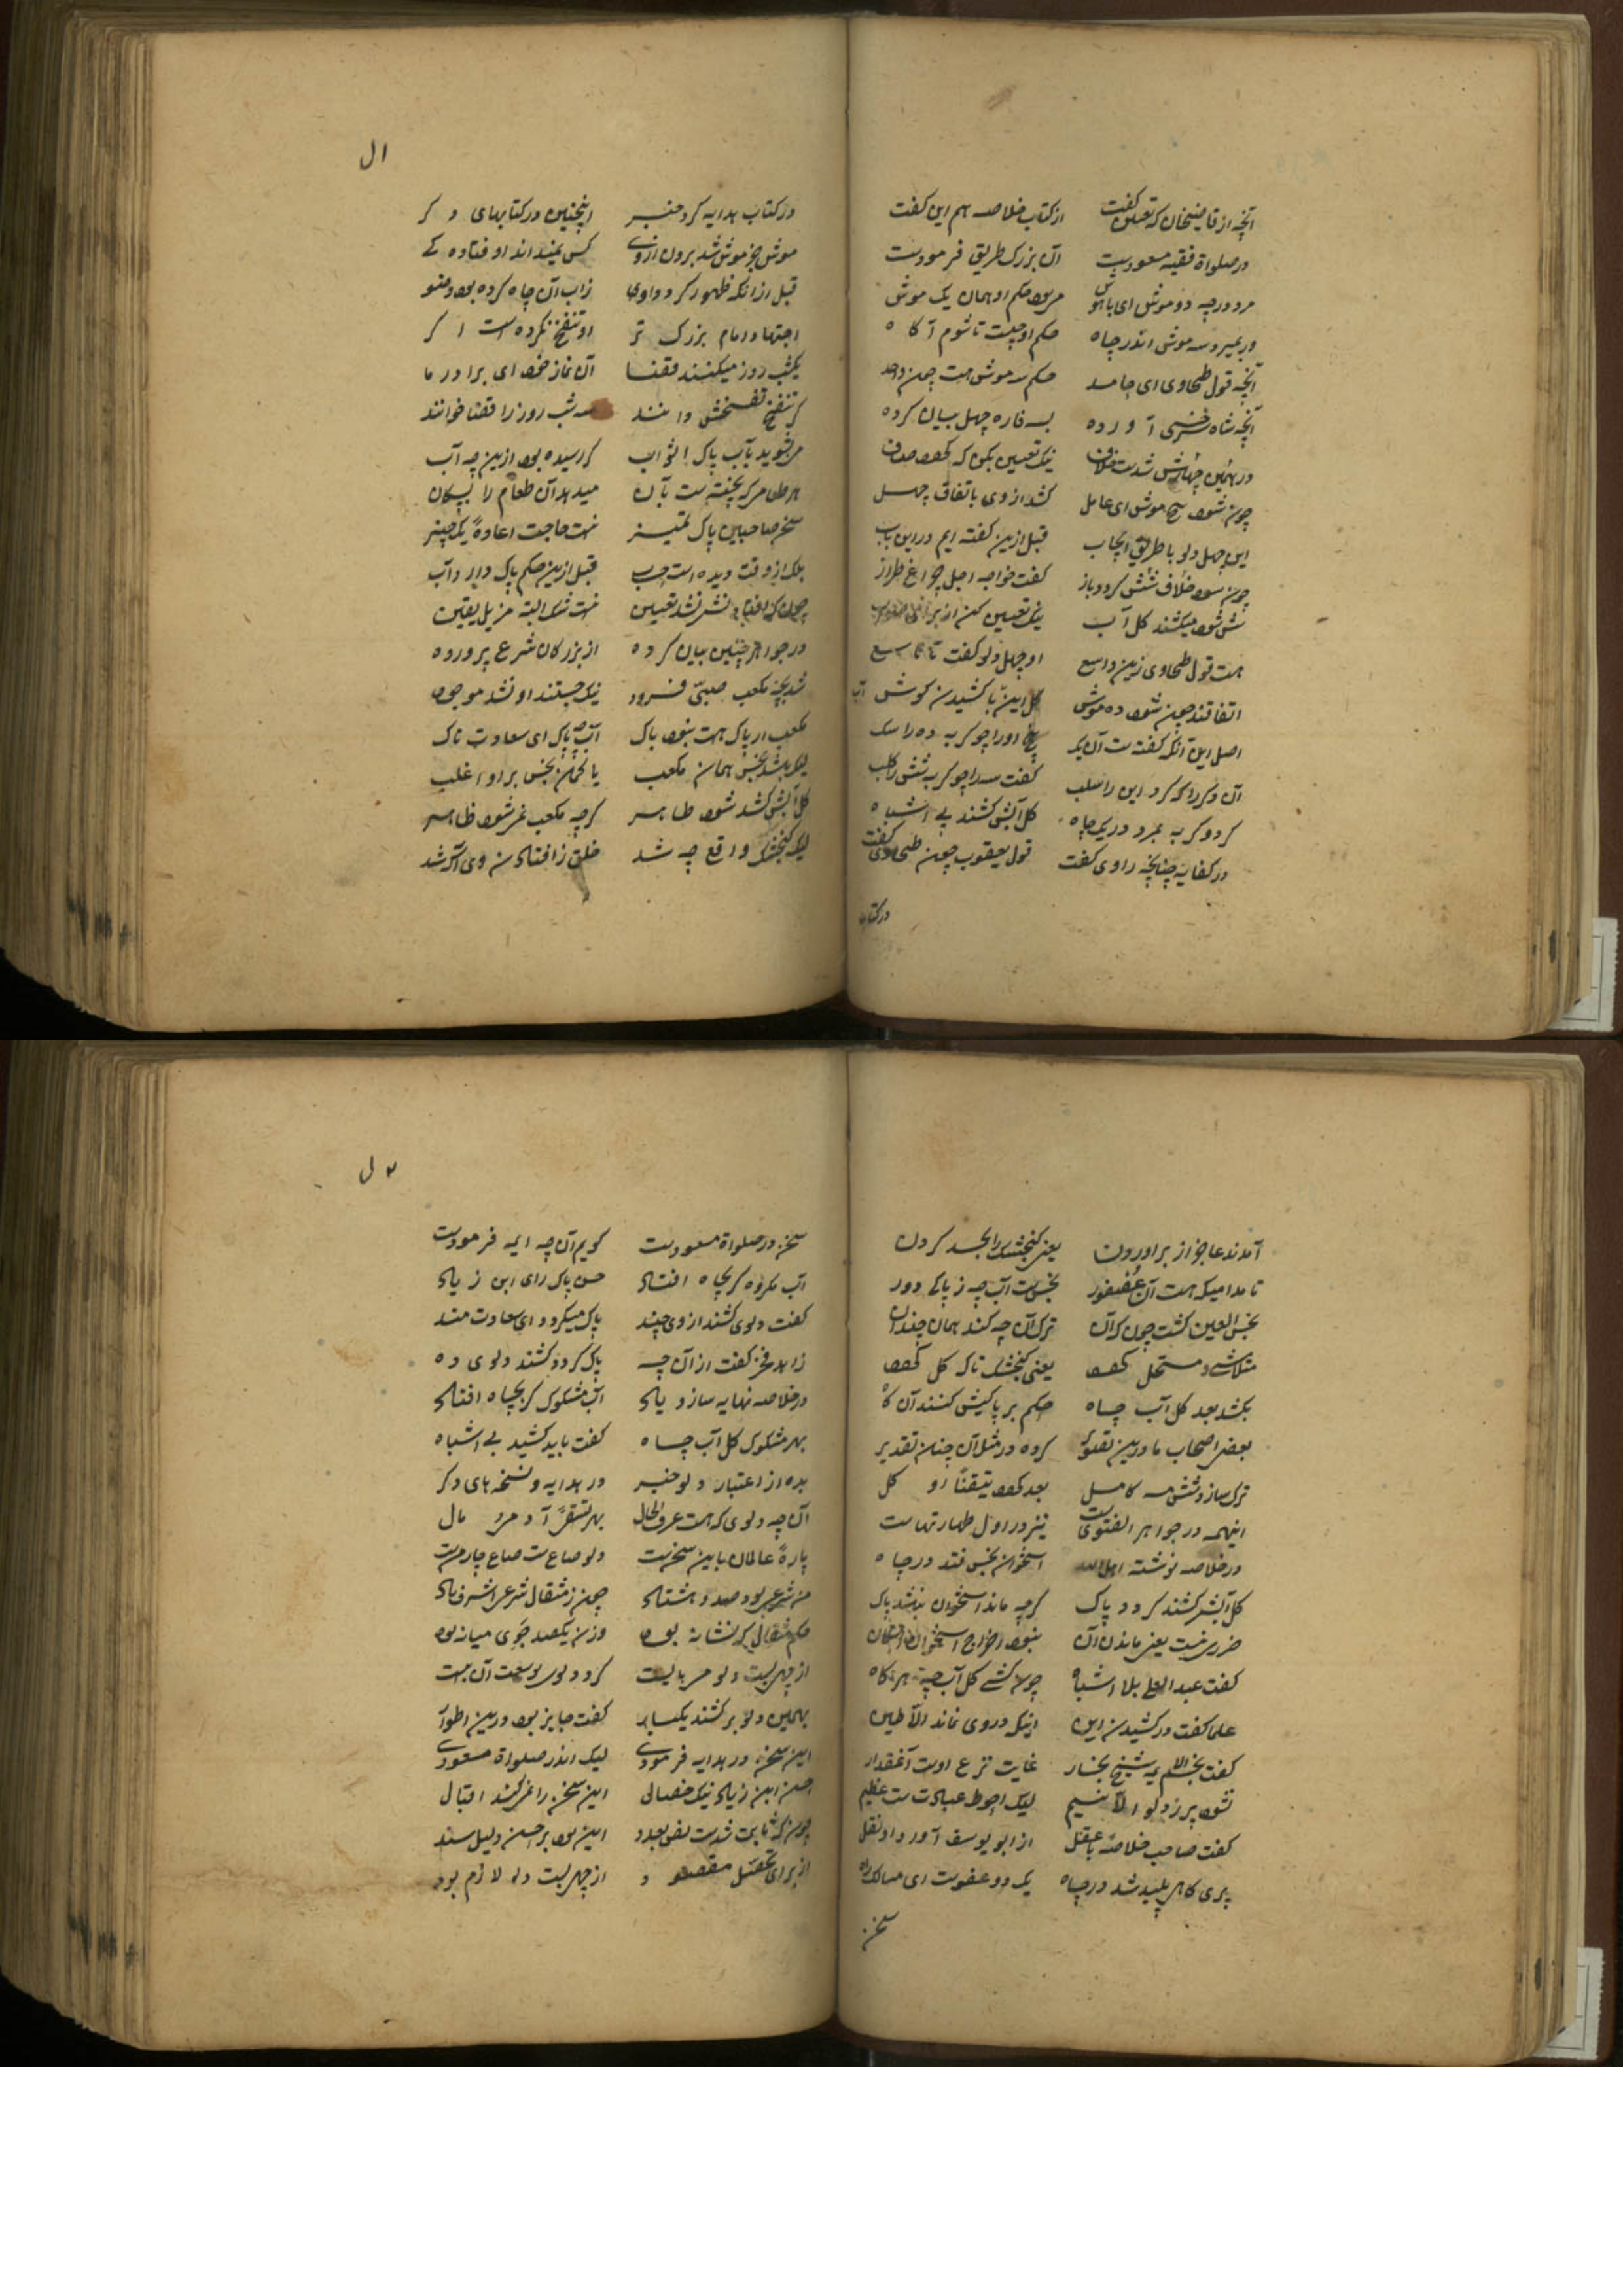 آنچه از قاضیخان که تعین گفت از کتاب خلاصه هم این گفت
در صلواة فقیه مسعودیست آن بزرک طریق فرمودست
مرد در چه دو موش ای باهوش مر بود حکم او همان یک موش
ور بمیرد سه موش اندر چاه حکم او چیست تا شوم آکاه
آنچه قول طحاوی ای حامد حکم سه موش هست چون واحد
آنچه شاه سرخسی آورده بسه فاره چهل بیان کرده
در همین چهارش شدست خلاف نیک تعیین بکن که
چون شود پنج موش ای عامل کشد از وی باتفاق چهل
این چهل دلو با طریق ایجاب قبل ازین کفته ایم در این باب
چون شود خلاف شش کردد باز کفت خواجه اجل چراغ طراز
شش شود میکشند کل آب نیک تعیین کن از برای
هست قول طحاوی زین واسع او چهل دلو کفت تا تاسع
اتفاقند چون شود ده موش کل این با کشیدن کوش آب
اصل این آنکه کفته ست آن یک پنج او را چو کربه ده را سک
آن دکر را که کرد این را سلب کفت سه را چو کربه شش را کلب
کر دو کربه بمرد در یک چاه کل آبش کشند بی اشباه
در کفایه چنانچه راوی کفت قول یعقوب چون طحاوی کفت
در کتاب
ال
در کتاب هدایه کرد خبر اینچنین در کتابهای دکر
موش جز موش شد برون از وی کس نمیداند او فتاده کی
قبل از آنکه ظهور کردد اوی زاب آن چاه کرده بود وضو
اجتهاد امام بزرک تر او تنفخ نکرده است اکر
یکشب روز میکنند قضا آن نماز خود ای برادر ما
کر تنفخ تفسخش دانند سه شب روز را قضا خوانند
می بشوید بآب پاک اثواب کر رسیده بود ازین چه آب
هر طعامی که پخته ست بآن میدهد آن طعام را بسکان
سخن صاحبین پاک تمیز نیست حاجت اعاده یک چیز
بلک از وقت دیده است قبل ازین حکم پاک دارد آب
چون که افتاد نشر نشد تعیین نیست شک البته مزیل یقین
در جواهر چنین بیان کرده از بزرکان شرع پرورده
شد بچه مکعب صبی فرود نیک جستند او نشد موجود
مکعب ار پاک هست بود پاک آب پاک ای سعادت ناک
لیک باشد نجس همان مکعب یا کمان نجس براو اغلب
کل آبش کشد شود طاهر کرچه مکعب نمر شود ظاهر
لیک کنجشک واقع چه شد خلق ز افتادن وی آکه شد
آمدند عاجز از برآوردن یعنی کنجشک را بجد کردن
تا مدامیکه هست آن عصفور نجس ست آب چه ز پاکی دور
نجس العین کشت چون که آن ترک آن چه کنند همان چندان
متلاشی و مستحیل یعنی کنجشک تا که کل
بکشد بعد کل آب چاه حکم بر پاکیش کنند آن کاه
بعض اصحاب ما درین کرده در مثل آن چنان تقدیر
ترک سازد شش مه کامل بعد تیقنا او کل
اینهمه در جواهر الفتوی ست نیز در اول طهارتهاست
در خلاصه نوشته استخوان نجس فتد در چاه
کل آبش کشند کردد پاک کرچه ماند استخوان نباشد باک
ضرری نیست یعنی ماندن آن نبود اخراج استخوان
کفت عبدالعلی بلا اشباه چون کشی کل آب چه هر کاه
علما کفت در کشیدن این اینکه در وی نماند الا طین
کفت نجم الایمه شیخ بخار غایت نزع اوست آنمقدار
نشود پر ز دلو الا نیم لیک احوط عبادت ست عظیم
کفت صاحب خلاصه با عقل از ابو یوسف آورد او نقل
پری کاهی پلید شد در چاه یک دو عفوست ای مبارک راه
سخن
۲ل
سخن در صلواة مسعودیست کویم آن چه ایمه فرمودست
آب مکروه کر بچاه افتاد حسن پاک رای ابن زیاد
کفت دلوی کشند از وی چند پاک میکردد ای سعادت مند
زاهد فخر کفت از آن چه پاک کردد کشند دلوی ده
در خلاصه نهایه سازد یاد آب مشکوک کر بچاه افتاد
بهر مشکوک کل آب چاه کفت باید کشید بی اشباه
بده از اعتبار دلو خبر در هدایه و نسخه های دکر
آن چه دلوی که هست عرف الحال بهر آدمی مال
پاره عالمان باین سخن ست دلو صاع ست صاع چار من ست
من شرعی بود صد و هشتاد چون ز مثقال شرعی اشرف یاد
حکم مثقال کر نشانه بود وزن یکصد جوی میانه بود
از چهل بیست دلو می بایست کرد دلوی بوسعت آن بیست
بهمین دلو بر کشند یکبار کفت جایز بود درین اطوار
این سخن در هدایه فرمودی لیک اندر صلواة مسعودی
حسن ابن زیاد نیک خصال این سخن را نمی کند اقبال
چون که ثابت شدست این بود بر حسن دلیل سند
از برای مقصود از چهل بیست دلو لازم بود